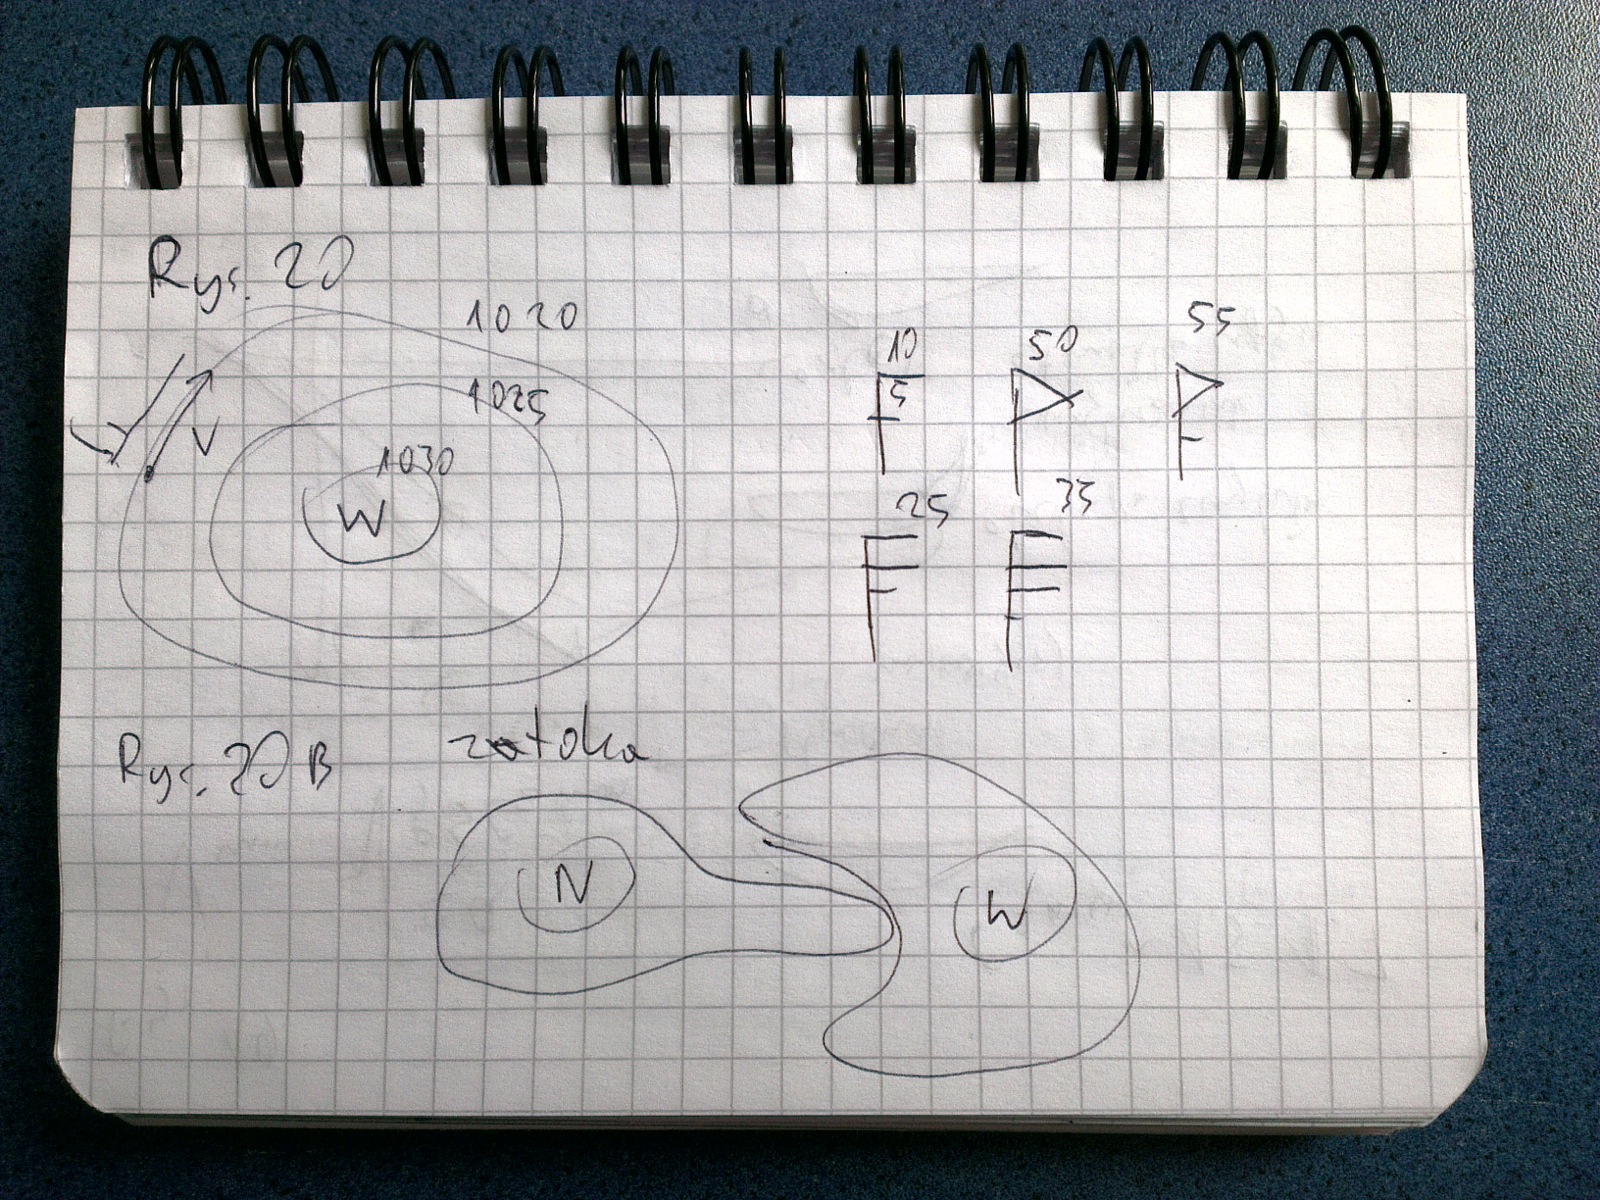 Rys. 20
1020
1025
1030
W
V
10
5
50
55
25
35
Rys. 20B
zatoka
N
W